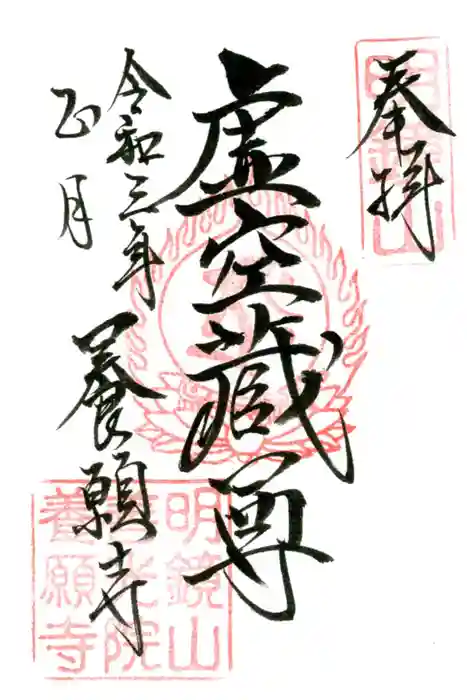 奉拝
明鏡山
虚空蔵尊
令和三年
正月
養願寺
明鏡山
善光院
養願寺